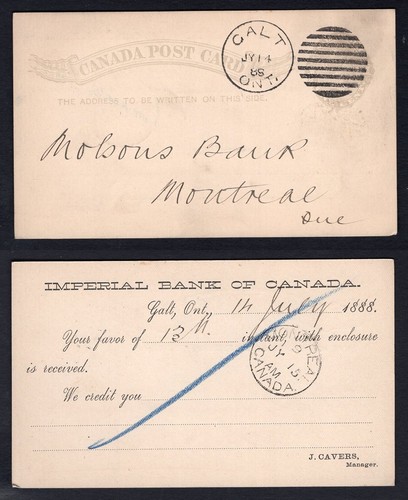 CANADA POST CARD
THE ADDRESS TO BE WRITTEN ON THIS SIDE.
GALT
JY 14
88
ONT.
Molsons Bank
Montreal
Due
IMPERIAL BANK OF CANADA.
Galt, Ont., 14 July 1888.
Your favor of 13th instant, with enclosure
is received.
We credit you
MONTREAL
9
JY 15
AM
CANADA.
J. CAVERS,
Manager.